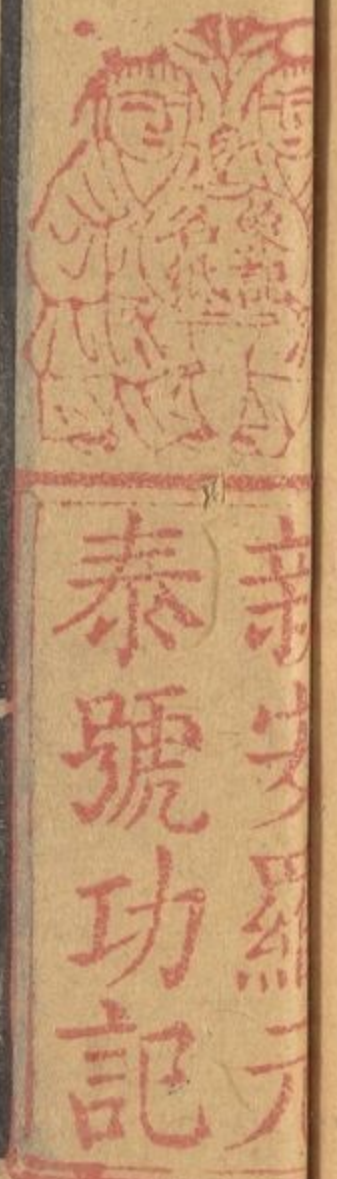 新安羅元
泰號功記